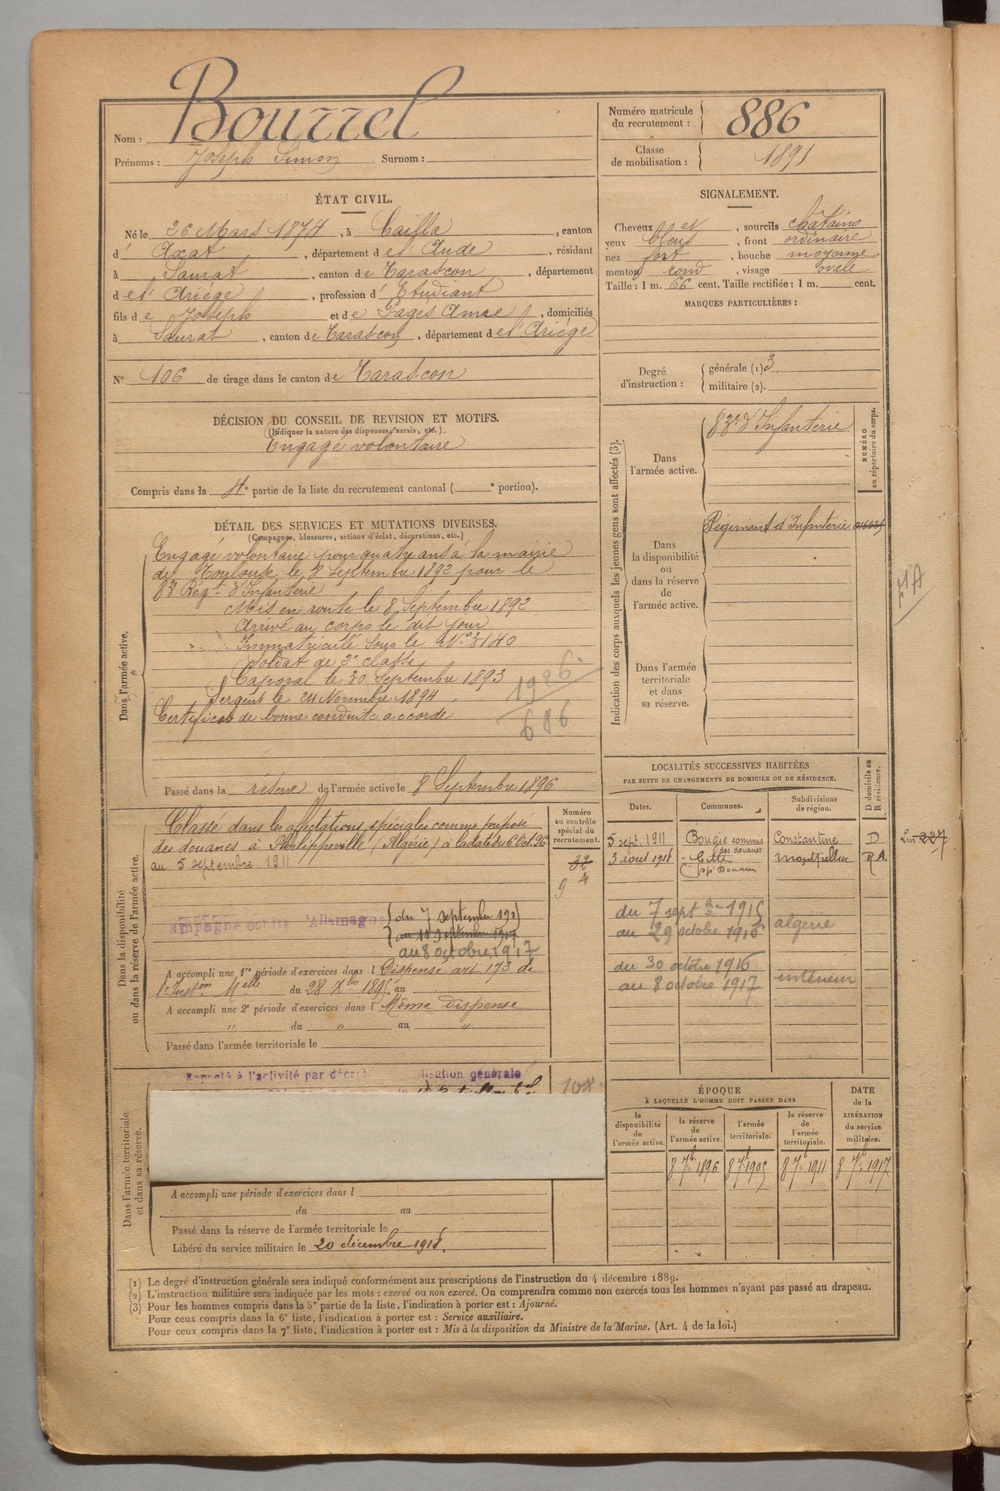 Nom : Bourrel
Prénoms : Joseph Simon Surnom :
Numéro matricule du recrutement : 886
Classe de mobilisation : 1891
ÉTAT CIVIL.
Né le 26 Mars 1874, à Cailla, canton
d' Axat, département de l'Aude, résidant
à Saurat, canton de Tarascon, département
de l'Ariège, profession d'Etudiant
fils de Joseph et de Pagès Anne, domiciliés
à Saurat, canton de Tarascon, département de l'Ariège
N° 106 de tirage dans le canton de Tarascon
SIGNALEMENT.
Cheveux et sourcils châtains
yeux bleus, front ordinaire
nez fort, bouche moyenne
menton rond, visage ovale
Taille : 1 m. 66 cent. Taille rectifiée : 1 m. cent.
MARQUES PARTICULIÈRES :
Degré d'instruction : générale (1) 3
militaire (2).
DÉCISION DU CONSEIL DE REVISION ET MOTIFS.
(Indiquer la nature des dispenses, sursis, etc.).
Engagé volontaire
Compris dans la 4e partie de la liste du recrutement cantonal ( e portion).
DÉTAIL DES SERVICES ET MUTATIONS DIVERSES.
(Campagnes, blessures, actions d'éclat, décorations, etc.)
Dans l'armée active.
Engagé volontaire pour quatre ans à la mairie
de Toulouse le 8 Septembre 1892 pour le
83e Régt d'Infanterie
Mis en route le 8 Septembre 1892
Arrivé au corps le dit jour
Immatriculé sous le N° 3140
Soldat de 2e classe
Caporal le 30 Septembre 1893
Sergent le 24 Novembre 1894
Certificat de bonne conduite accordé
1926
686
Passé dans la réserve de l'armée active le 8 Septembre 1896
Indication des corps auxquels les jeunes gens sont affectés (3).
Dans l'armée active.
83e d'Infanterie
NUMÉRO au répertoire du corps.
Dans la disponibilité ou dans la réserve de l'armée active.
Régiment d'Infanterie
Dans l'armée territoriale et dans sa réserve.
LOCALITÉS SUCCESSIVES HABITÉES
PAR SUITE DE CHANGEMENTS DE DOMICILE OU DE RÉSIDENCE.
Dates. Communes. Subdivisions de région. D domicile ou R résidence.
5 sept. 1911 Bougie commis des douanes Constantine D
3 août 1918 Cette Montpellier R.A.
du 7 sept 1915
au 29 octobre 1916 algérie
du 30 octobre 1916
au 8 octobre 1917 intérieur
Dans la disponibilité ou dans la réserve de l'armée active.
Numéro au contrôle spécial du recrutement.
Classé dans les affectations spéciales comme préposé
des douanes à Philippeville (Algérie) à la date du 6 Oct. 96
au 5 septembre 1911
32
9 4
Campagne contre l'Allemagne
du 7 septembre 1915
au 11 Septembre 1917
au 8 octobre 1917
A accompli une 1re période d'exercices dans l Dispensé art 173 de
l'Juston Mlle du 28 Xbre 1895 au
A accompli une 2e période d'exercices dans l' Même dispense
" du " au "
Passé dans l'armée territoriale le
Dans l'armée territoriale et dans sa réserve.
Rappelé à l'activité par décret mobilisation générale
108
A accompli une période d'exercices dans l
du au
Passé dans la réserve de l'armée territoriale le
Libéré du service militaire le 20 décembre 1918.
ÉPOQUE
À LAQUELLE L'HOMME DOIT PASSER DANS
la disponibilité de l'armée active. la réserve de l'armée active. l'armée territoriale. la réserve de l'armée territoriale.
DATE de la LIBÉRATION du service militaire.
8 7bre 1896 8 7bre 1905 8 7bre 1911 8 7bre 1917
(1) Le degré d'instruction générale sera indiqué conformément aux prescriptions de l'instruction du 4 décembre 1889.
(2) L'instruction militaire sera indiquée par les mots : exercé ou non exercé. On comprendra comme non exercés tous les hommes n'ayant pas passé au drapeau.
(3) Pour les hommes compris dans la 5e partie de la liste, l'indication à porter est : Ajourné.
Pour ceux compris dans la 6e liste, l'indication à porter est : Service auxiliaire.
Pour ceux compris dans la 7e liste, l'indication à porter est : Mis à la disposition du Ministre de la Marine. (Art. 4 de la loi.)